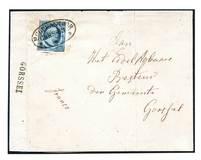 GORSSEL
Aan
Het Edel Agtbaare
Bestuur
der Gemeente
Gorssel
franco